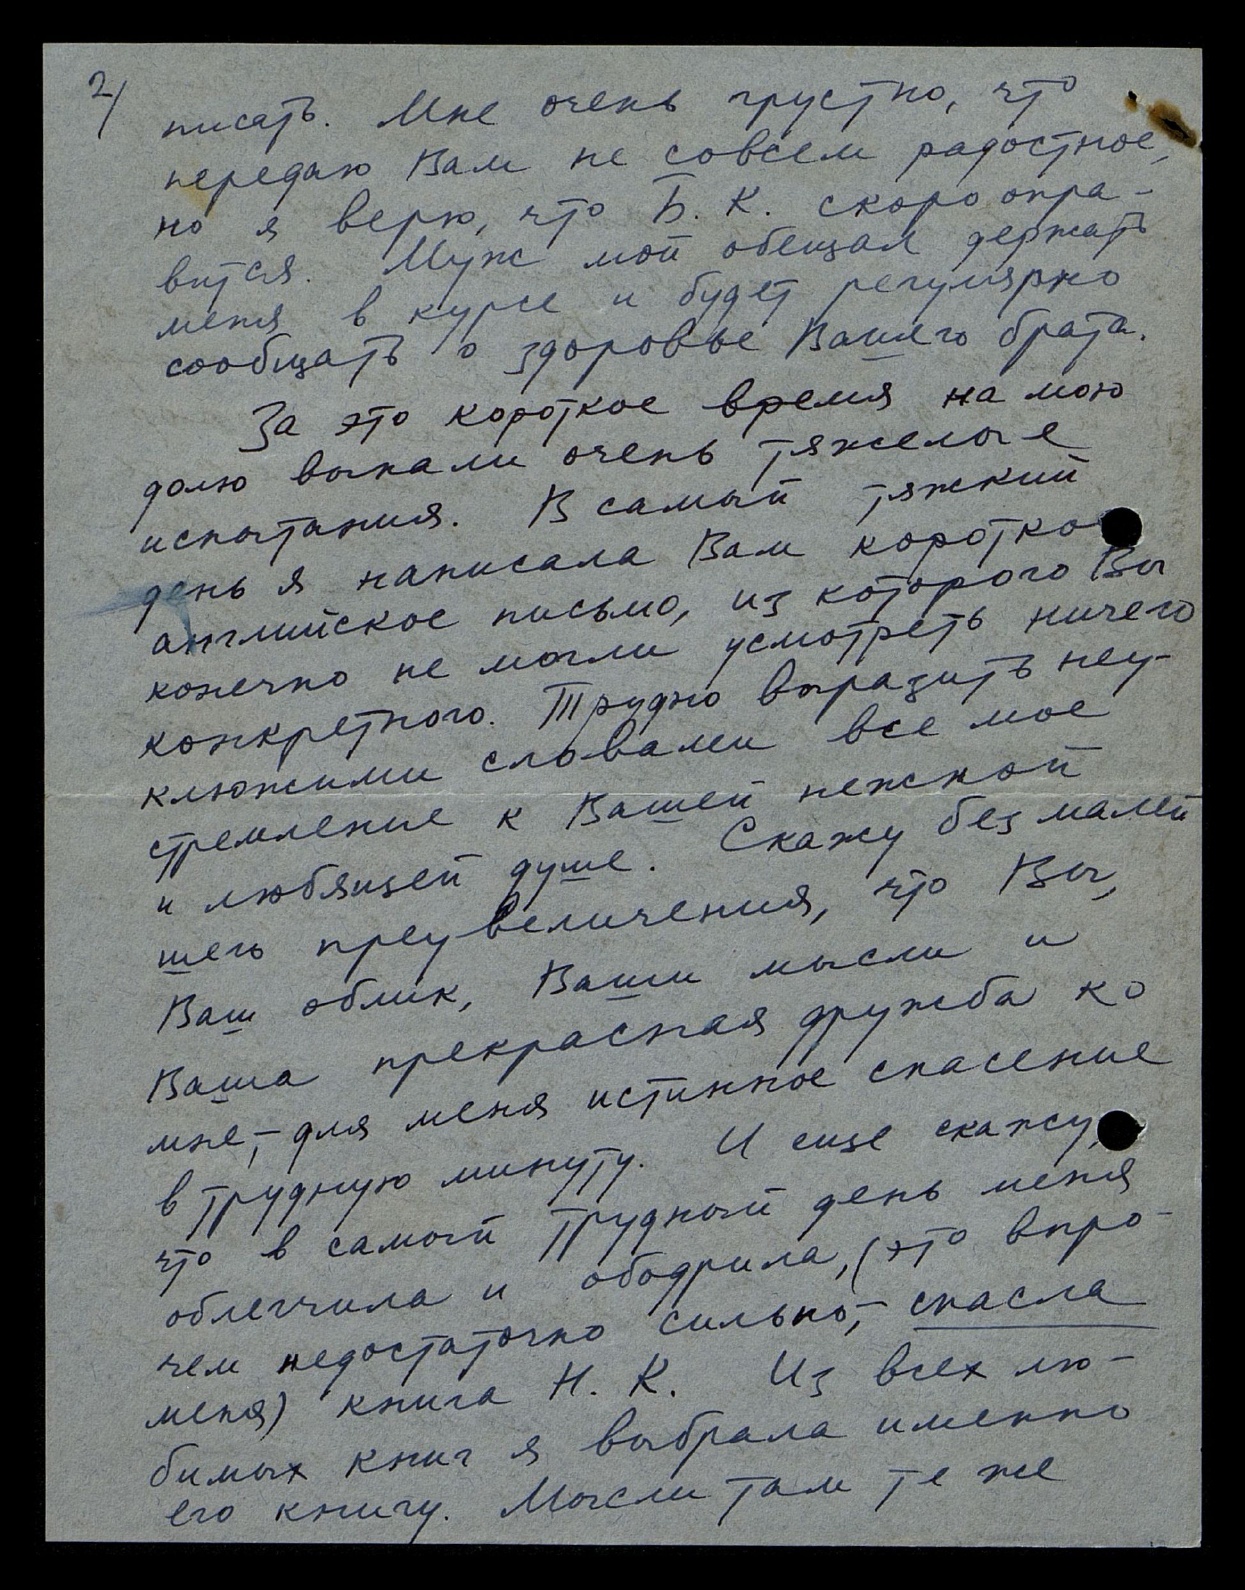 2/
писать. Мне очень грустно, что
передаю Вам не совсем радостное,
но я верю, что Б. К. скоро опра-
вится. Муж мой обещал держать
меня в курсе и будет регулярно
сообщать о здоровье Вашего брата.
За это короткое время на мою
долю выпали очень тяжелые
испытания. В самый тяжкий
день я написала Вам коротко
английское письмо, из которого Вы
конечно не могли усмотреть ничего
конкретного. Трудно выразить неу-
клюжими словами все мое
стремление к Вашей нежной
и любящей душе. Скажу без малей
шего преувеличения, что Вы,
Ваш облик, Ваши мысли и
Ваша прекрасная дружба ко
мне,– для меня истинное спасение
в трудную минуту. И еще скажу,
что в самый трудный день меня
облегчила и ободрила, (это впро-
чем недостаточно сильно,– спасла
меня) книга Н. К. Из всех лю-
бимых книг я выбрала именно
его книгу. Мысли там те же